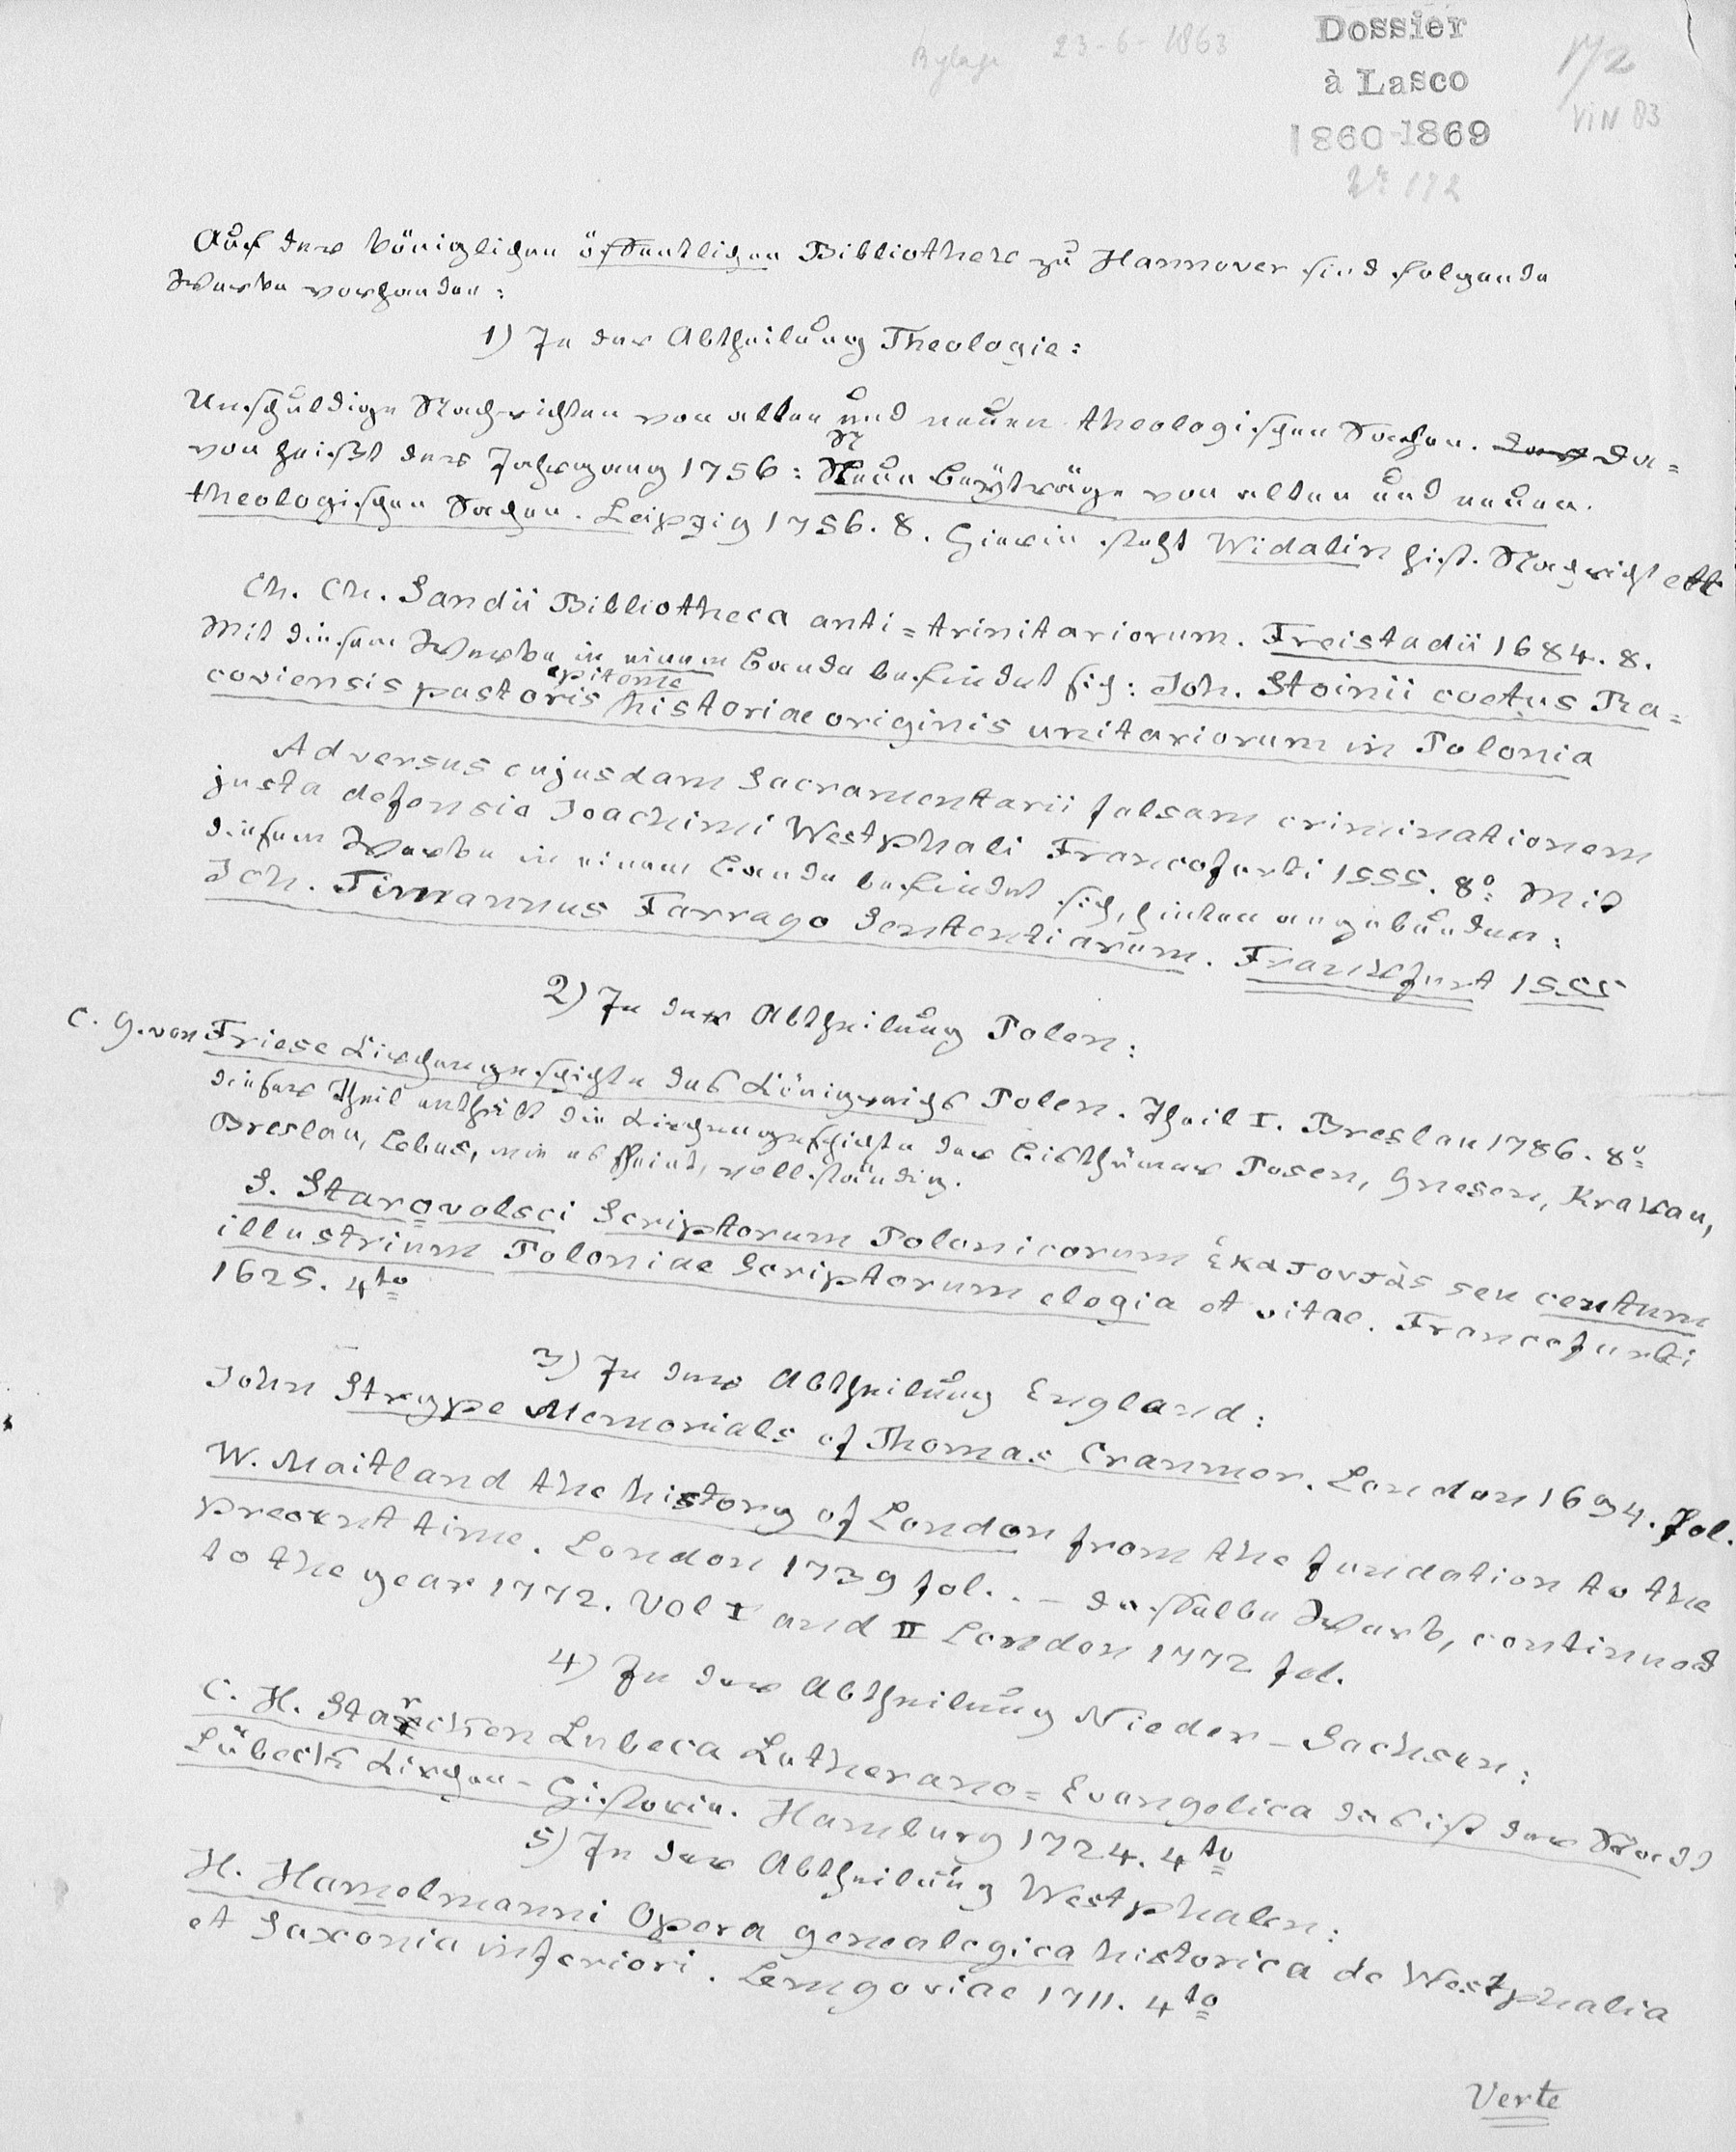 Bylage 23-6-1863
Dossier
à Lasco
1860-1869
Nr 172
172
VIN 83
Auf der königlichen öffentlichen Bibliothek zu Hannover sind folgende
Werke vorhanden:
1) In der Abtheilung Theologie:
Unschuldige Nachrichten von alten und neuen theologischen Sachen. Da=
von heißt der Jahrgang 1756: Neue Beyträge von alten und neuen
theologischen Sachen. Leipzig 1756. 8. Hierin steht Widalin hist. Nachricht etc
Ch. Ch. Sandii Bibliotheca anti=trinitariorum. Freistadii 1684. 8.
Mit diesem Werke in einem Bande befindet sich: Joh. Stoinii coetus Ra=
coviensis pastoris epitome historiae originis unitariorum in Polonia
Adversus cujusdam Sacramentarii falsam criminationem
justa defensio Joachimi Westphali Francofurti 1555. 8o. Mit
diesem Werke in einem Bande befindet sich, hinten angebunden:
Joh. Timannus Farrago Sententiarum. Frankfurt 1555
2) In der Abtheilung Polen:
C. G. von Friese Kirchengeschichte des Königreichs Polen. Theil I. Breslau 1786. 8o
dieser Theil enthält die Kirchengeschichte der Bisthümer Posen, Gnesen, Krakau,
Breslau, Lebus, wie es scheint, vollständig.
S. Starovolsci Scriptorum Polonicorum Ἑκατοντὰς seu centum
illustrium Poloniae Scriptorum elogia et vitae. Francofurti
1625. 4to
3) In der Abtheilung England:
John Strype Memorials of Thomas Cranmer. London 1694. Fol.
W. Maitland the history of London from the fundation to the
present time. London 1739 fol. . – dasselbe Werk, continued
to the year 1772. Vol I and II London 1772 fol.
4) In der Abtheilung Nieder-Sachsen:
C. H. Starcken Lubeca Lutherano=Evangelica das ist der Stadt
Lübeck Kirchen-Historie. Hamburg 1724. 4to
5) In der Abtheilung Westphalen:
H. Hamelmanni Opera genealogica historica de Westphalia
et Saxonia inferiori. Lemgoviae 1711. 4to
Verte